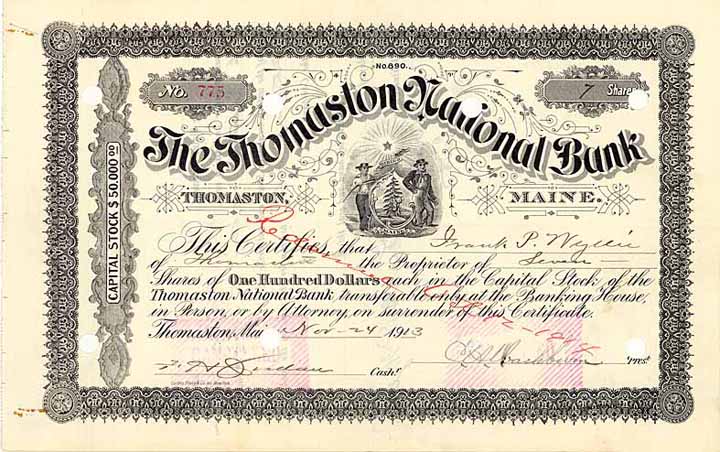 No. 890.
No. 775
7 Shares
The Thomaston National Bank
THOMASTON, MAINE.
CAPITAL STOCK $ 50,000.00
This Certifies, that Frank P. Wyllie
of Thomaston the Proprietor of Seven
Shares of One Hundred Dollars each in the Capital Stock of the
Thomaston National Bank transferable only at the Banking House,
in Person, or by Attorney, on surrender of this Certificate.
Thomaston, Maine Nov-24 1913
Cash.r
Washburn Pres.t